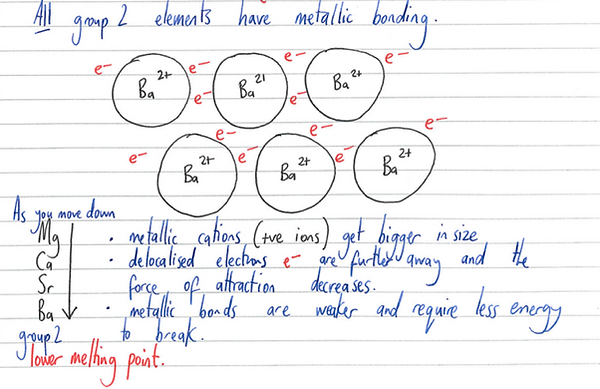 All group 2 elements have metallic bonding.
e- e- e-
Ba2+ Ba2+ Ba2+
e- e-
e- e- e-
e- e- e-
Ba2+ Ba2+ Ba2+
As you move down
Mg · metallic cations (+ve ions) get bigger in size
Ca · delocalised electrons e- are further away and the
Sr force of attraction decreases.
Ba · metallic bonds are weaker and require less energy
group 2 to break.
lower melting point.